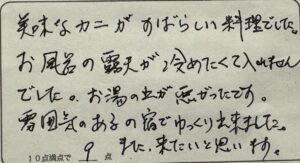 美味なカニがすばらしい料理でした。
お風呂の露天が冷めたくて入れません
でした。お湯の出が悪かったです。
雰囲気のある宿でゆっくり出来ました。
また、来たいと思います。
10点満点で 9 点